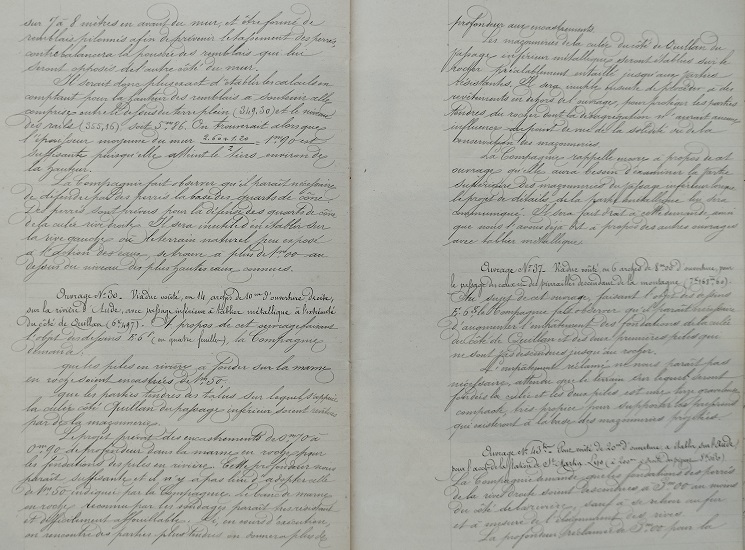 sur 7 à 8 mètres en avant du mur, et être formé de
remblais pilonnés afin de prévenir le tassement des perrés
contrebalancera la poussée des remblais qui lui
seront opposés de l'autre côté du mur.
Il serait donc plus exact d'établir les calculs en
comptant pour la hauteur des remblais à soutenir celle
comprise entre le dessous du terre plein (349,30) et le niveau
des rails (355,16) soit 5m86. On trouverait alors que
l'épaisseur moyenne du mur 2.60+1.20/2 = 1m90 est
suffisante puisqu'elle atteint le tiers environ de
la hauteur.
La Compagnie fait observer qu'il paraît nécessaire
de défendre par des perrés la base des quarts de cône.
Des perrés sont prévus pour la défense des quarts de cône
de la culée rive droite. Il sera inutile d'en établir sur
la rive gauche où le terrain naturel peu exposé
à l'action des eaux, se trouve à plus de 1m00 au
dessus du niveau des plus hautes eaux connues.
Ouvrage No 30. Viaduc voûté, en 14 arches de 10m d'ouverture droite,
sur la rivière d'Aude, avec passage inférieur à tablier métallique à l'extrémité
du côté de Quillan À propos de cet ouvrage faisant
l'objet du dessin (en quatre feuilles), la Compagnie
demande:
que les piles en rivière à fonder sur la marne
en roche soient encastrées de 1m50;
que les parties tendres du talus sur lequel s'appuie
la culée côté Quillan du passage inférieur soient
par de la maçonnerie.
Le projet prévoit des encastrements de 0m70 à
0m90 de profondeur dans la marne en roche pour
les fondations des piles en rivière. Cette profondeur nous
paraît suffisante et il n'y a pas lieu d'adopter celle
de 1m50 indiquée par la Compagnie. Le banc de marne
en roche reconnu par les sondages paraît très résistant
et difficilement affouillable. Si, en cours d'exécution,
on rencontre des parties plus tendres on donnera plus de
profondeur aux encastrements.
Les maçonneries de la culée du côté de Quillan du
passage inférieur métallique seront établies sur le
rocher préalablement entaillé jusqu'aux parties
résistantes. Il sera inutile ensuite de procéder à des
revêtements en dehors de l'ouvrage, pour protéger les parties
tendres du rocher dont la désagrégation n'aurait aucune
influence au point de vue de la solidité ou de la
conservation des maçonneries.
La Compagnie rappelle encore à propos de cet
ouvrage qu'elle aura besoin d'examiner la partie
supérieure des maçonneries du passage inférieur lorsque
le projet de détails de la partie métallique lui sera
communiqué. Il sera fait droit à cette demande, ainsi
que nous l'avons déjà dit à propos des autres ouvrages
avec tablier métallique.
Ouvrage No 37. Viaduc voûté en 6 arches de 8m00 d'ouverture, pour
le passage du ruisseau descendant de la montagne
Au sujet de cet ouvrage, faisant l'objet du dessin
la Compagnie fait observer qu'il paraît
d'augmenter l'empatement des fondations de la culée
du côté de Quillan et des deux premières piles qui
ne sont pas descendues jusqu'au rocher.
L'empatement réclamé ne nous paraît pas
nécessaire, attendu que le terrain sur lequel seront
fondées la culée et les deux piles est
compacte, très propre pour supporter les pressions
qui existeront à la base des maçonneries projetées.
Ouvrage No Pont voûté de 20m d'ouverture, à établir sur l'Aude
pour l'accès de la station de St Martin Lys
La Compagnie demande que les fondations des perrés
de la rive droite soient descendues à 3m00 au moins
du côté de la rivière, sauf à se relever au fur
et à mesure de l'éloignement des rives.
La profondeur réclamée de 3m00 pour la